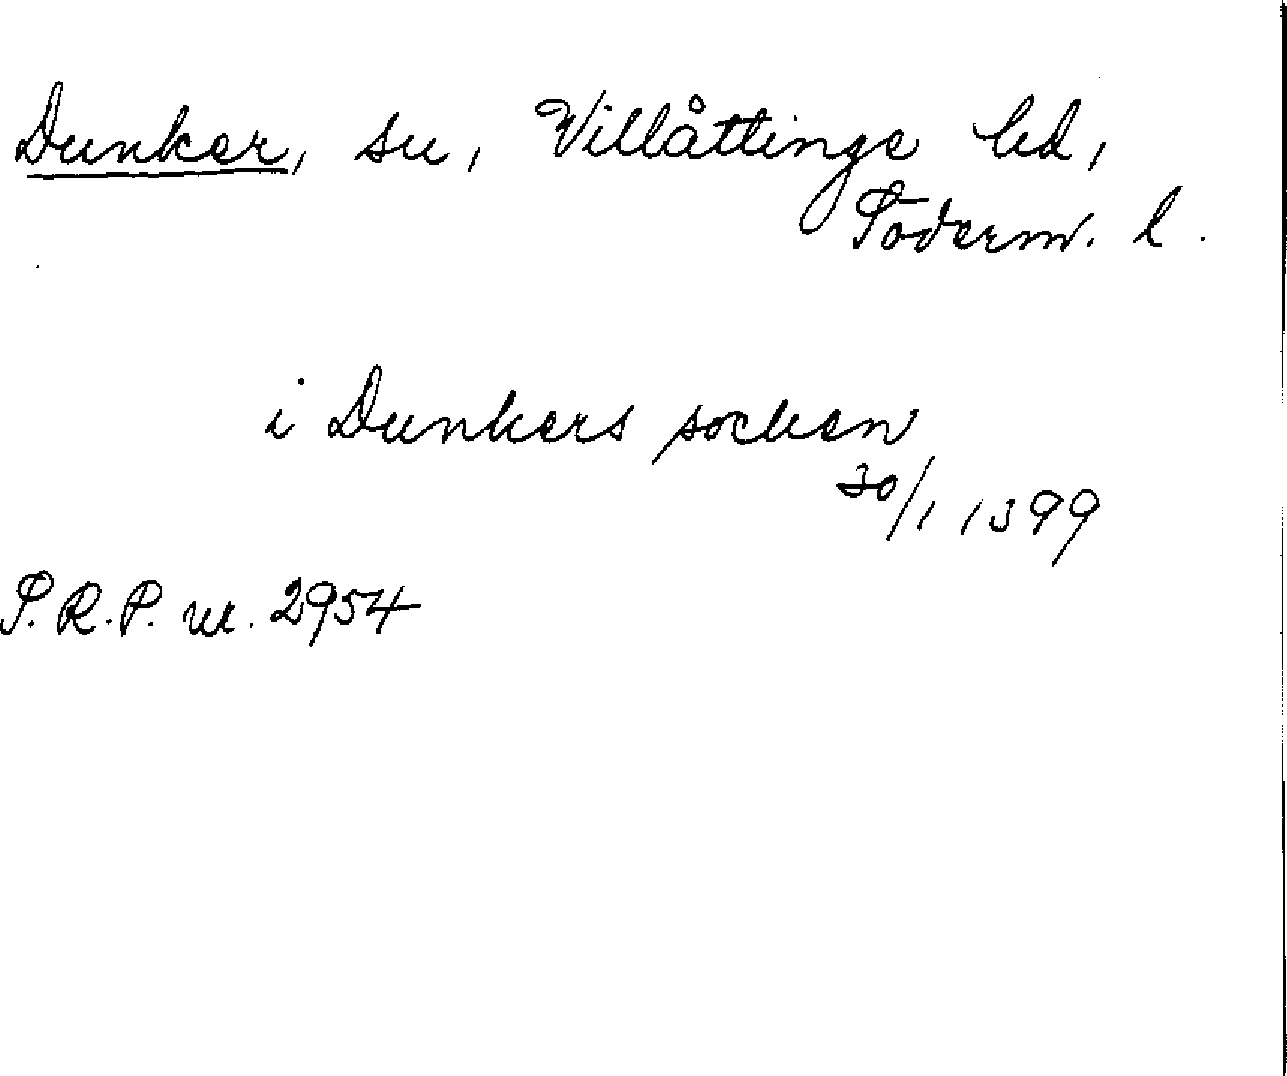 Dunker, sn, Villåttinge hd,
Söderm. l.
i Dunkers socken
30/1 1399
S.R.P. nr. 2954